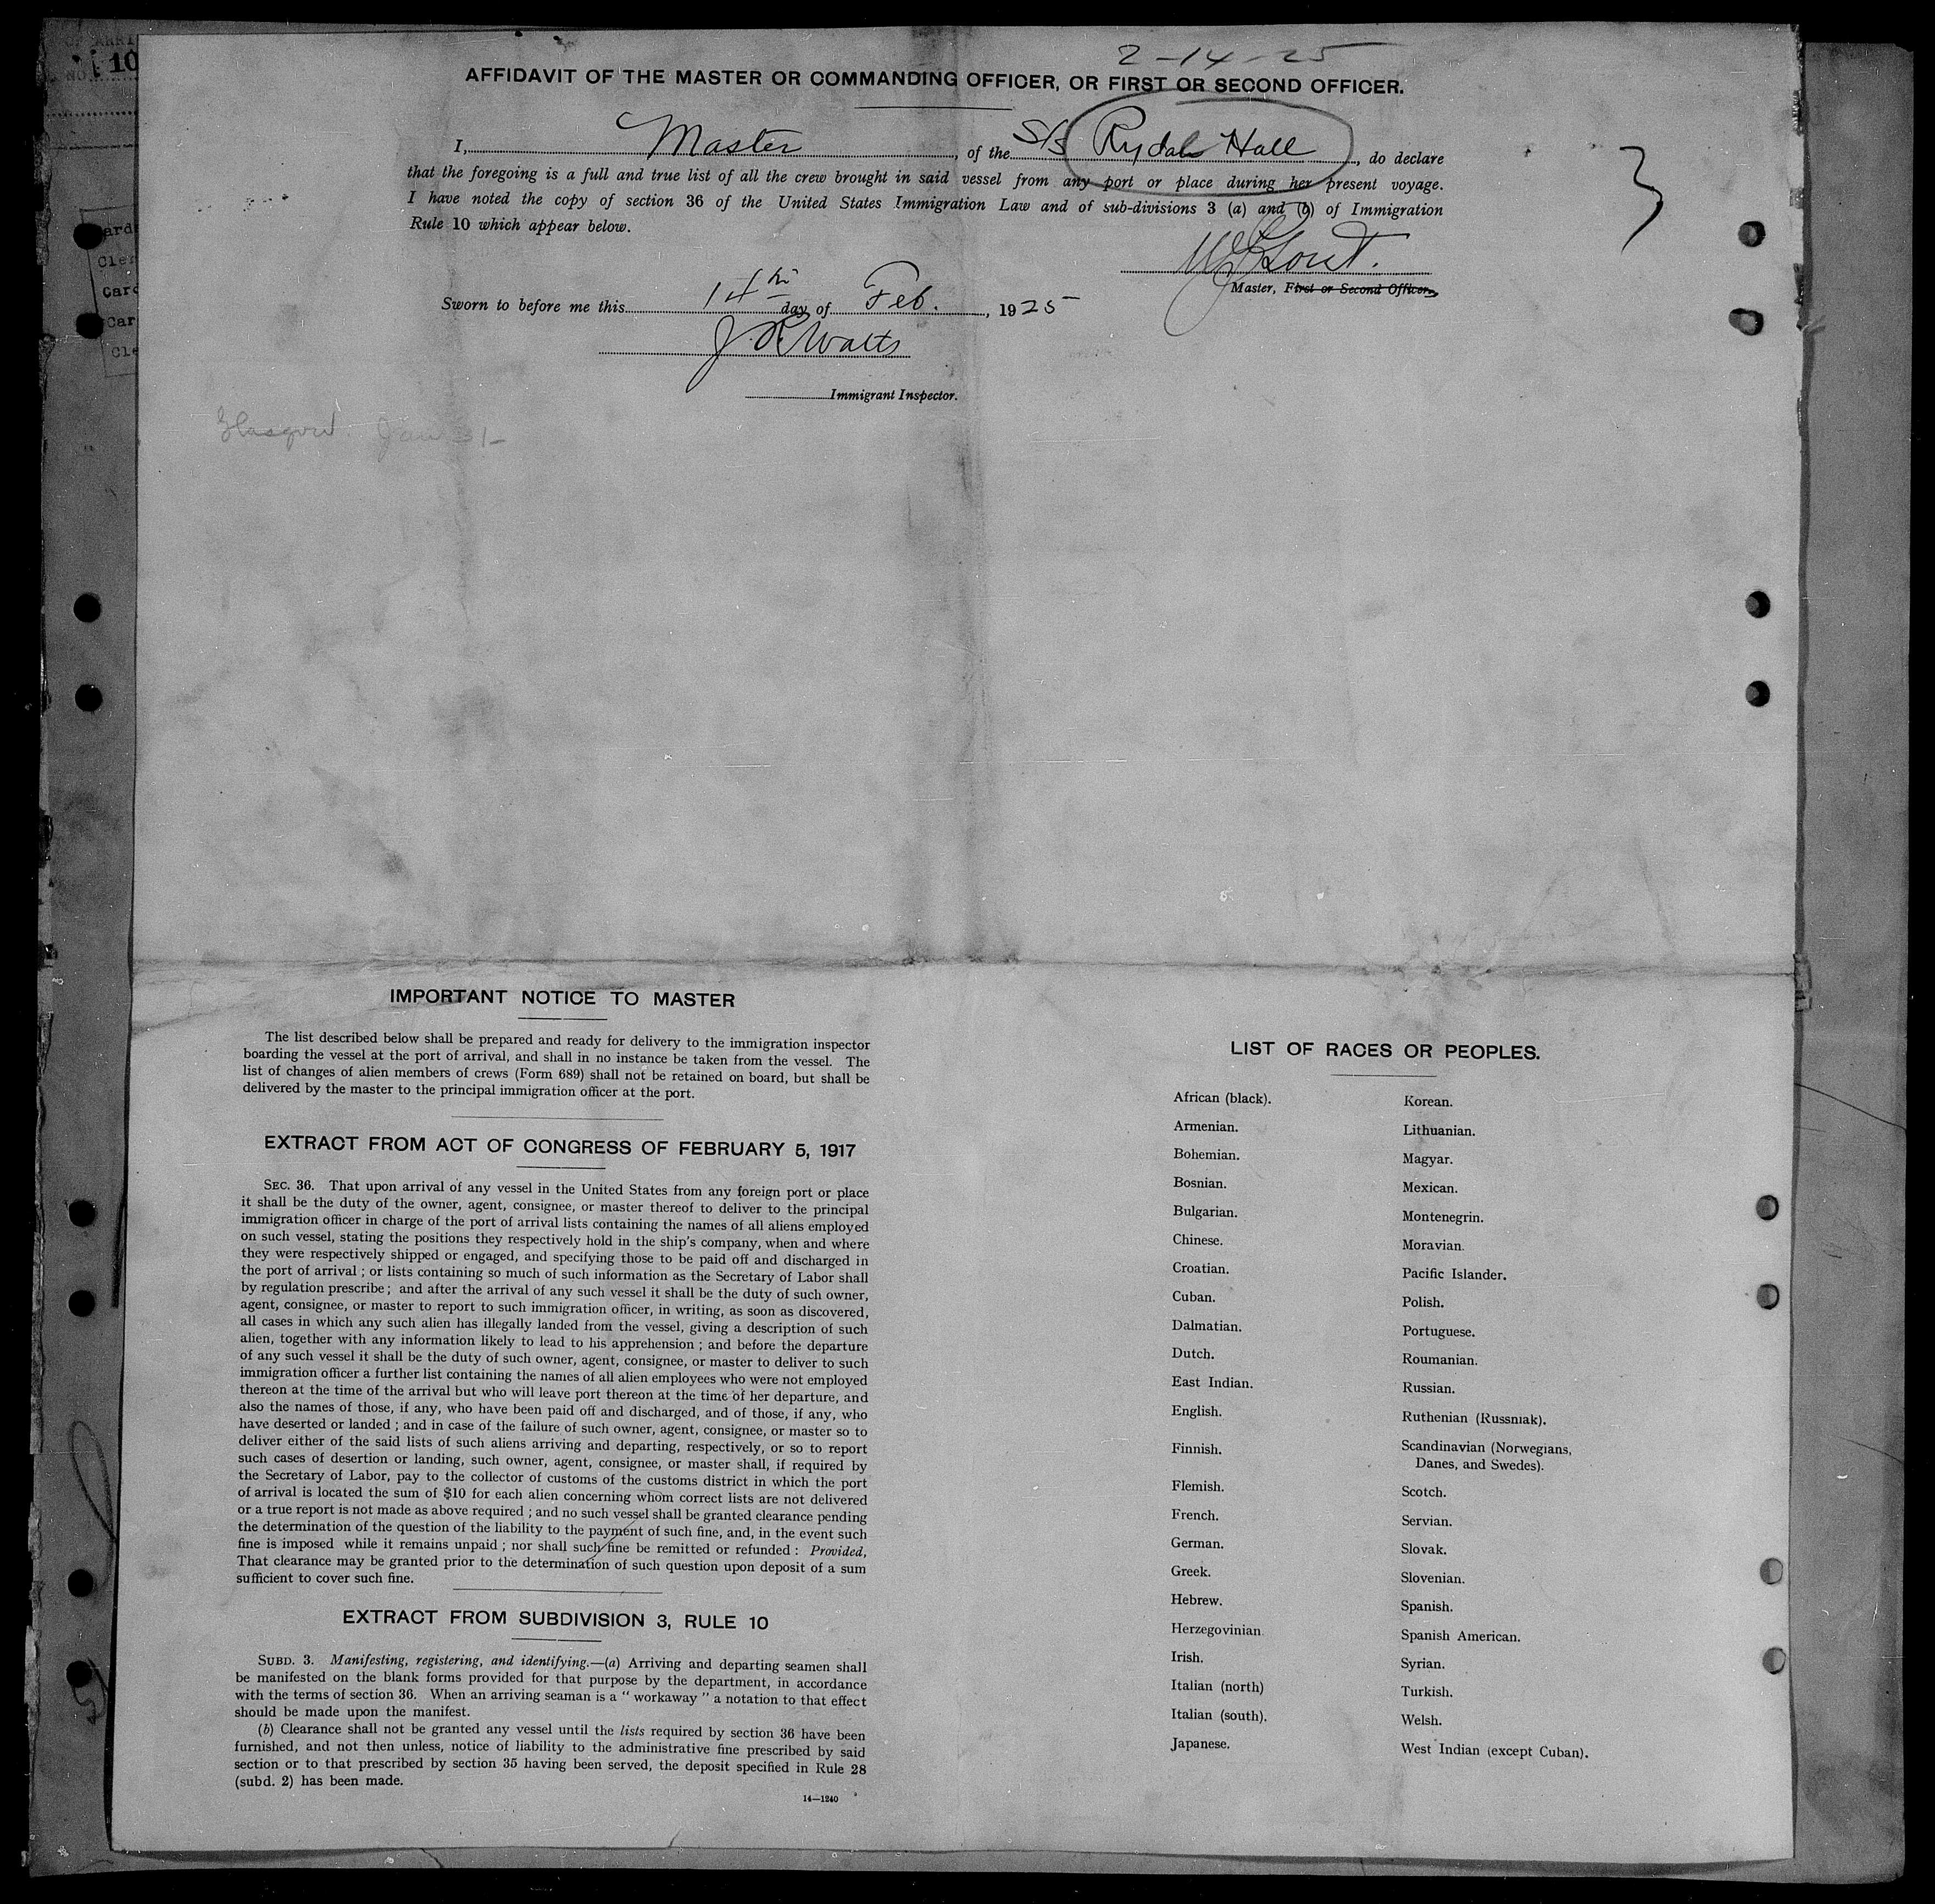 2-14-25
AFFIDAVIT OF THE MASTER OR COMMANDING OFFICER, OR FIRST OR SECOND OFFICER.
I, Master, of the S/S Rydal Hall, do declare
that the foregoing is a full and true list of all the crew brought in said vessel from any port or place during her present voyage.
I have noted the copy of section 36 of the United States Immigration Law and of sub-divisions 3 (a) and (b) of Immigration
Rule 10 which appear below.
3
Master, First or Second Officer.
Sworn to before me this 14th day of Feb., 1925
J. R. Watts
Immigrant Inspector.
Glasgow. Jan 31-
10
IMPORTANT NOTICE TO MASTER
The list described below shall be prepared and ready for delivery to the immigration inspector
boarding the vessel at the port of arrival, and shall in no instance be taken from the vessel. The
list of changes of alien members of crews (Form 689) shall not be retained on board, but shall be
delivered by the master to the principal immigration officer at the port.
EXTRACT FROM ACT OF CONGRESS OF FEBRUARY 5, 1917
SEC. 36. That upon arrival of any vessel in the United States from any foreign port or place
it shall be the duty of the owner, agent, consignee, or master thereof to deliver to the principal
immigration officer in charge of the port of arrival lists containing the names of all aliens employed
on such vessel, stating the positions they respectively hold in the ship's company, when and where
they were respectively shipped or engaged, and specifying those to be paid off and discharged in
the port of arrival ; or lists containing so much of such information as the Secretary of Labor shall
by regulation prescribe ; and after the arrival of any such vessel it shall be the duty of such owner,
agent, consignee, or master to report to such immigration officer, in writing, as soon as discovered,
all cases in which any such alien has illegally landed from the vessel, giving a description of such
alien, together with any information likely to lead to his apprehension ; and before the departure
of any such vessel it shall be the duty of such owner, agent, consignee, or master to deliver to such
immigration officer a further list containing the names of all alien employees who were not employed
thereon at the time of the arrival but who will leave port thereon at the time of her departure, and
also the names of those, if any, who have been paid off and discharged, and of those, if any, who
have deserted or landed ; and in case of the failure of such owner, agent, consignee, or master so to
deliver either of the said lists of such aliens arriving and departing, respectively, or so to report
such cases of desertion or landing, such owner, agent, consignee, or master shall, if required by
the Secretary of Labor, pay to the collector of customs of the customs district in which the port
of arrival is located the sum of $10 for each alien concerning whom correct lists are not delivered
or a true report is not made as above required ; and no such vessel shall be granted clearance pending
the determination of the question of the liability to the payment of such fine, and, in the event such
fine is imposed while it remains unpaid ; nor shall such fine be remitted or refunded : Provided,
That clearance may be granted prior to the determination of such question upon deposit of a sum
sufficient to cover such fine.
EXTRACT FROM SUBDIVISION 3, RULE 10
SUBD. 3. Manifesting, registering, and identifying.—(a) Arriving and departing seamen shall
be manifested on the blank forms provided for that purpose by the department, in accordance
with the terms of section 36. When an arriving seaman is a " workaway " a notation to that effect
should be made upon the manifest.
(b) Clearance shall not be granted any vessel until the lists required by section 36 have been
furnished, and not then unless, notice of liability to the administrative fine prescribed by said
section or to that prescribed by section 35 having been served, the deposit specified in Rule 28
(subd. 2) has been made.
14—1240
LIST OF RACES OR PEOPLES.
African (black).
Armenian.
Bohemian.
Bosnian.
Bulgarian.
Chinese.
Croatian.
Cuban.
Dalmatian.
Dutch.
East Indian.
English.
Finnish.
Flemish.
French.
German.
Greek.
Hebrew.
Herzegovinian
Irish.
Italian (north)
Italian (south).
Japanese.
Korean.
Lithuanian.
Magyar.
Mexican.
Montenegrin.
Moravian.
Pacific Islander.
Polish.
Portuguese.
Roumanian.
Russian.
Ruthenian (Russniak).
Scandinavian (Norwegians,
Danes, and Swedes).
Scotch.
Servian.
Slovak.
Slovenian.
Spanish.
Spanish American.
Syrian.
Turkish.
Welsh.
West Indian (except Cuban).